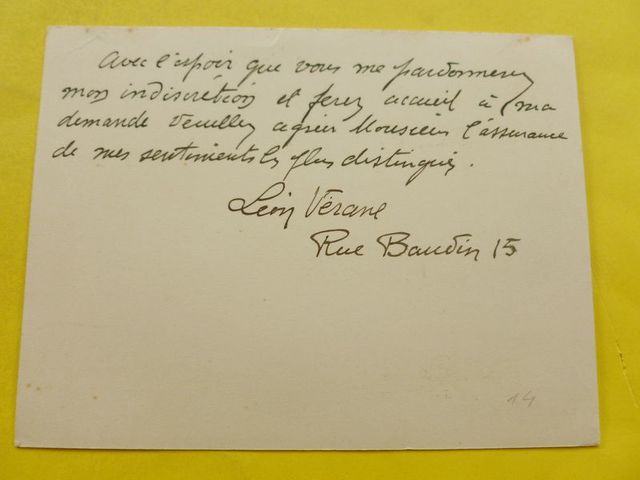 Avec l'espoir que vous me pardonnerez
mon indiscrétion et ferez accueil à ma
demande Veuillez agréer Monsieur l'assurance
de mes sentiments les plus distingués.
Léon Vérane
Rue Baudin 15
14